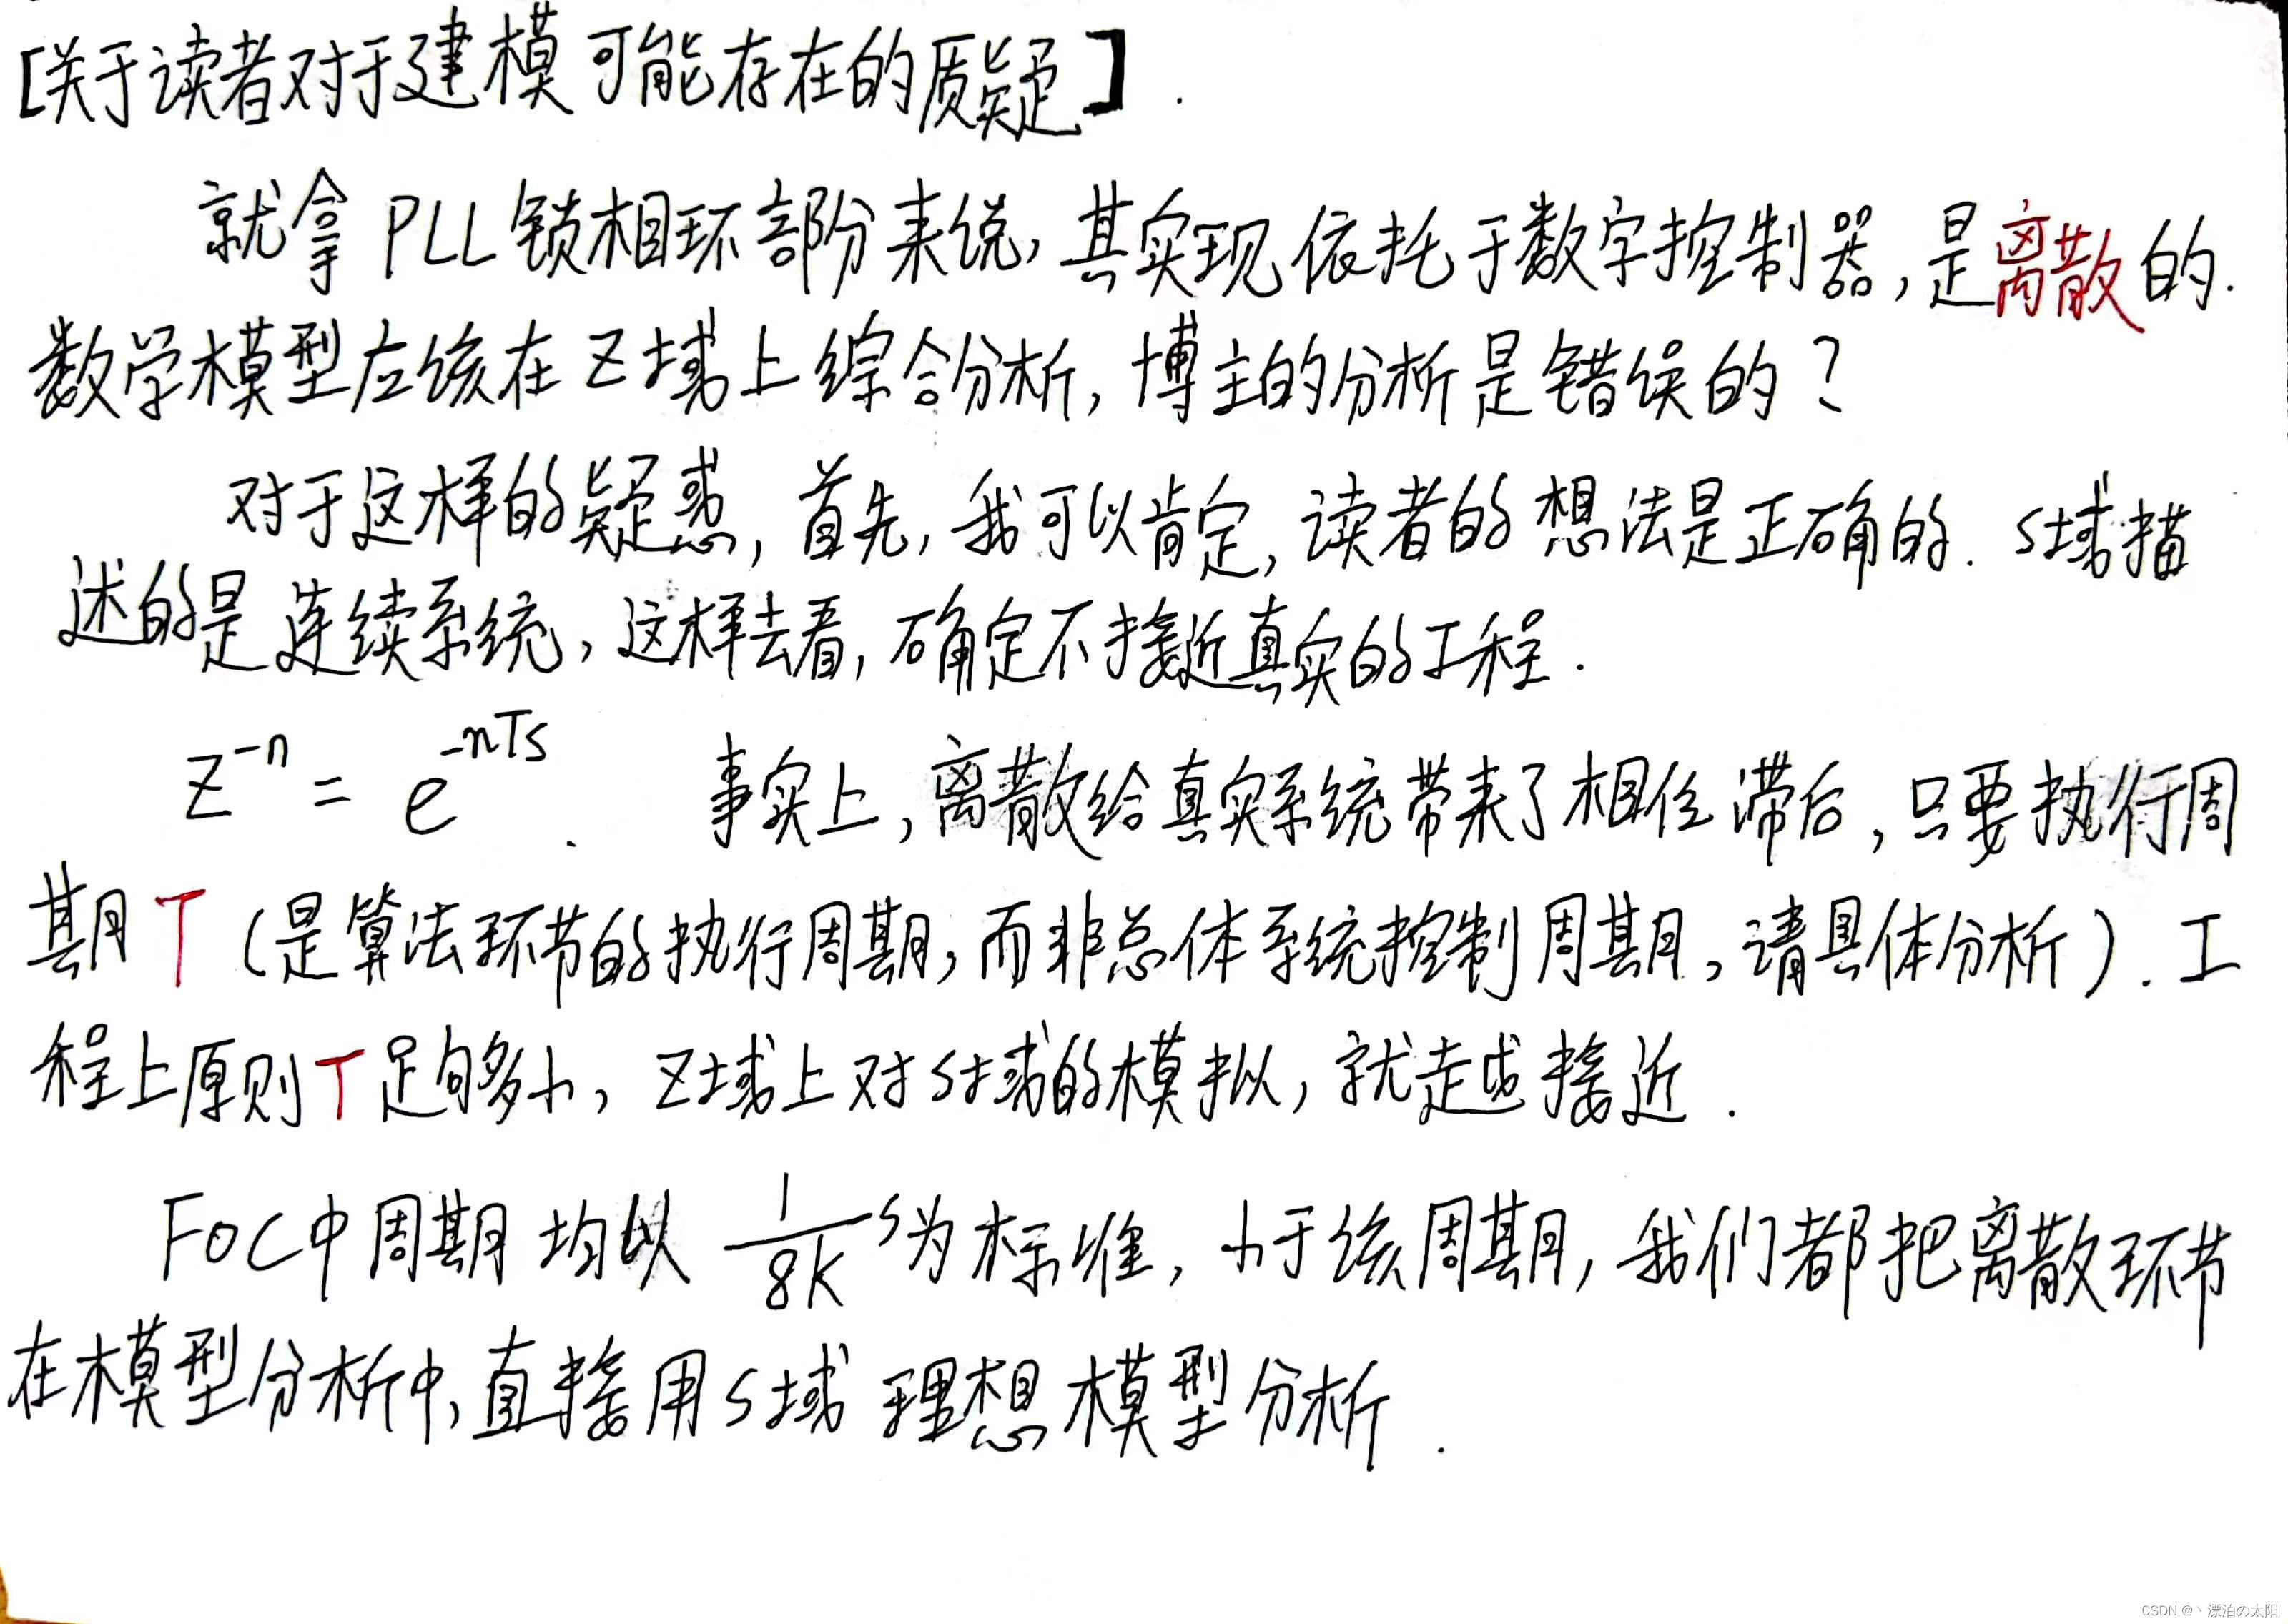 [关于读者对于建模可能存在的质疑].
就拿PLL锁相环部分来说,其实现依托于数字控制器,是离散的.
数学模型应该在Z域上综合分析,博主的分析是错误的?
对于这样的疑惑,首先,我可以肯定,读者的想法是正确的. S域描
述的是连续系统,这样去看,确定不接近真实的工程.
Z^{-n} = e^{-nTs}. 事实上,离散给真实系统带来了相位滞后,只要执行周
期T(是算法环节的执行周期,而非总体系统控制周期,请具体分析).工
程上原则T足够小,Z域上对S域的模拟,就越接近.
FOC中周期均以 1/8K s为标准,小于该周期,我们都把离散环节
在模型分析中,直接用S域理想模型分析.
CSDN @丶漂泊の太阳